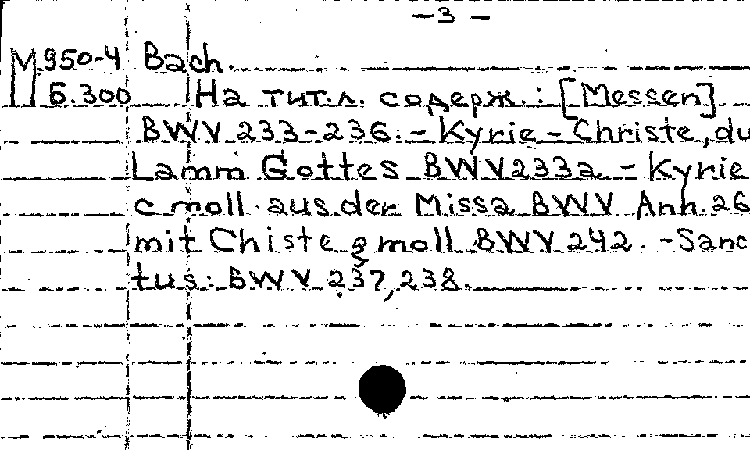 – 3 –
М 950-4 Bach.
Б.300 На тит.л. содерж.: [Messen]
BWV 233-236. – Kyrie – Christe, du
Lamm Gottes BWV 233a – Kyrie
c moll aus der Missa BWV Anh. 26
mit Chiste g moll BWV 242. – Sanc
tus: BWV 237, 238.